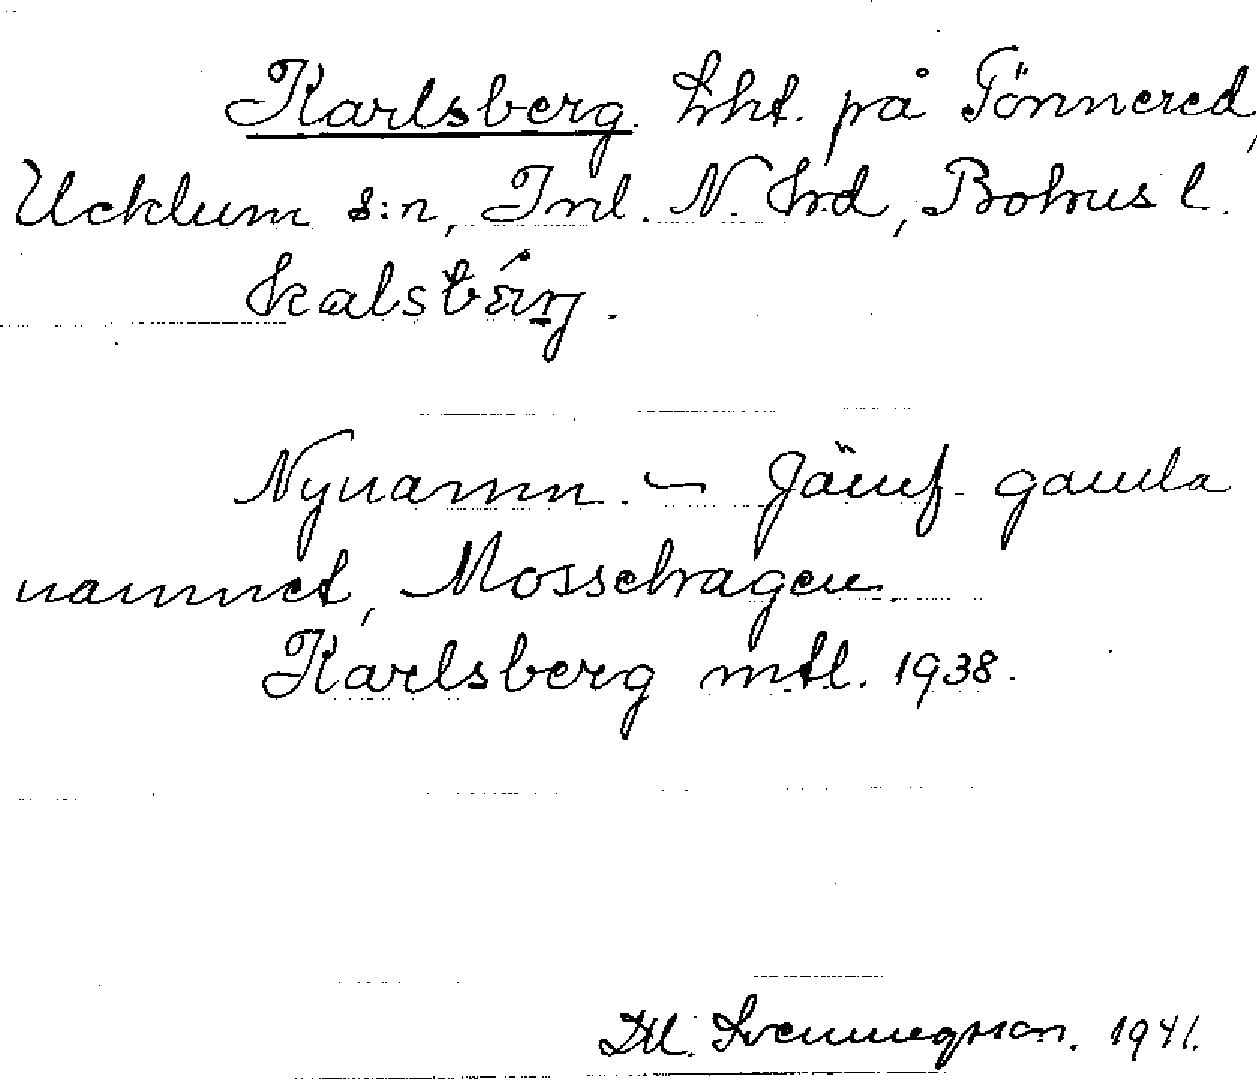 Karlsberg. Lht. på Tönnered,
Ucklum s:n, Inl. N. Hrd, Bohus l.
kalsbärj.
Nynamn. – Jämf. gamla
namnet, Mossehagen.
Karlsberg mtl. 1938.
D. Svenningsson. 1941.